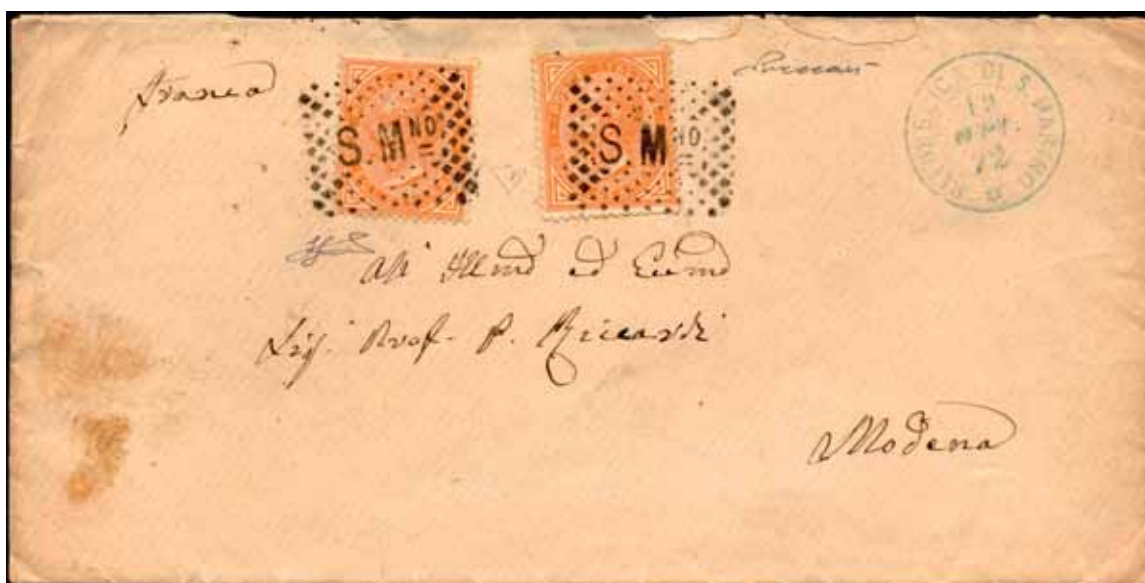 Franco
S. M NO.
S. M NO.
REPUBBLICA DI S. MARINO
12
72
All' Illmo ed Eccmo
Sig. Prof. P. Riccardi
Modena